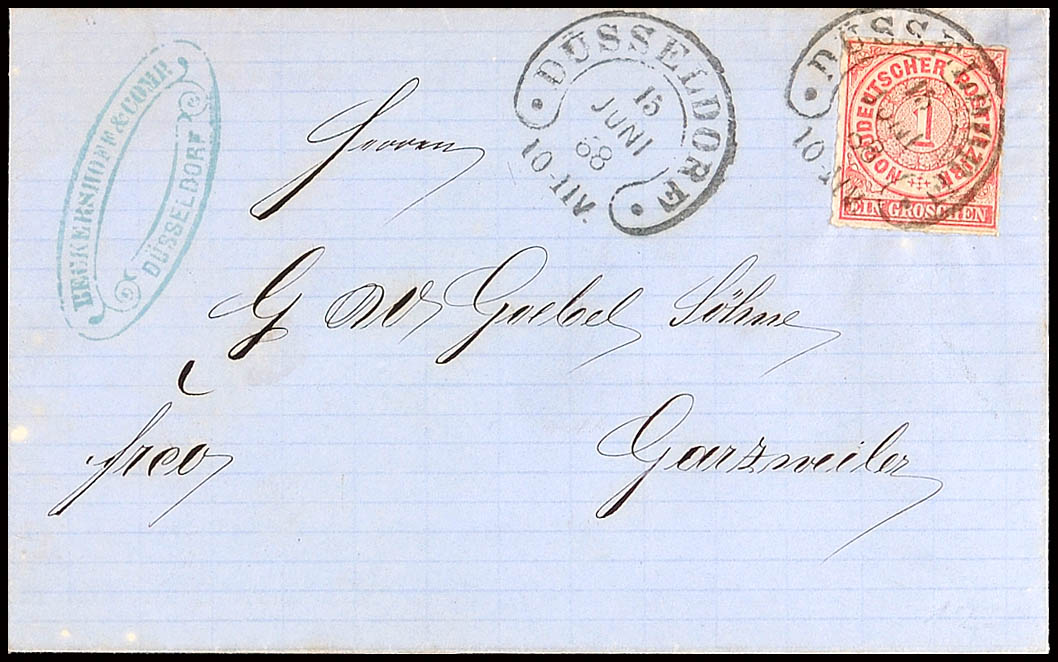 BECKERSHOFF & COMP.
DÜSSELDORF
DÜSSELDORF
15
JUNI
68
10-11V.
DÜSSELDORF
15
JUNI
68
10-11V.
NORDDEUTSCHER POSTBEZIRK
1
EIN GROSCHEN
Herren
G W Goebel Söhne
frco
Garzweiler